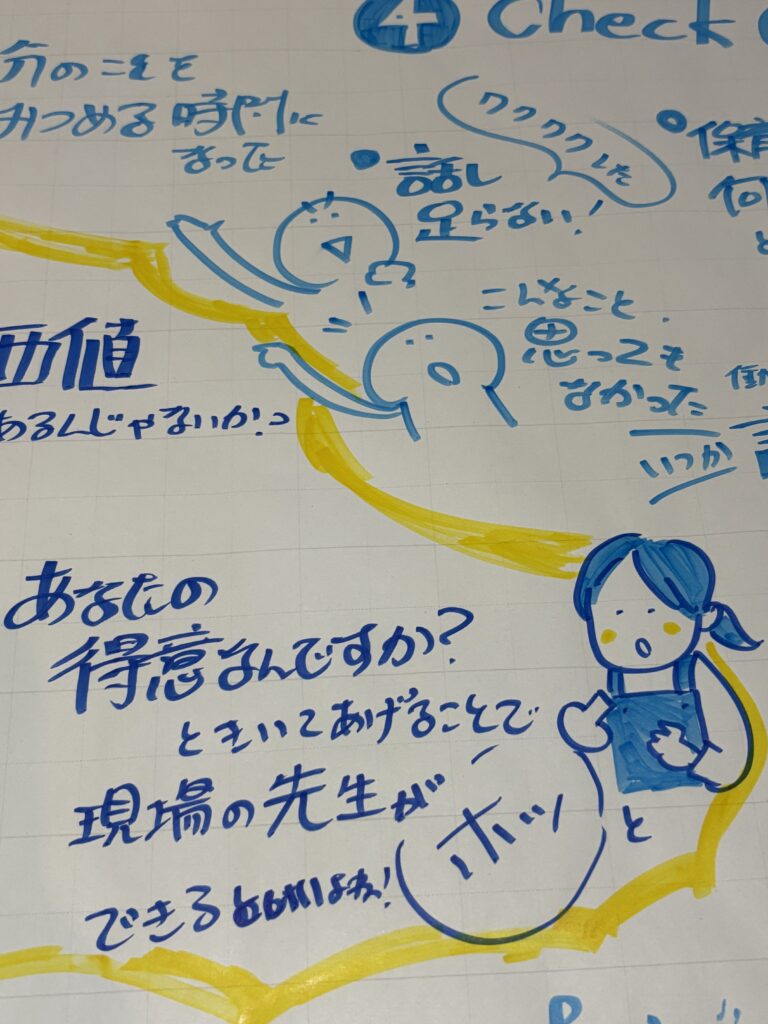 4 Check
分のことを
みつめる時間に
なってて
ワクワクした
話し
足らない!
保育
何
と
こんなこと、
思っても
なかった
働
いつか
価値
あるんじゃないか?っ
あなたの
得意なんですか?
ときいてあげることで
現場の先生が
ホッ
と
できる
よね!